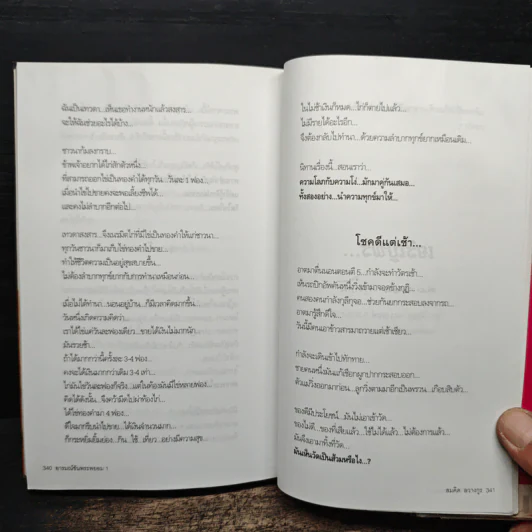 ฉันเป็นเทวดา...เห็นเธอทำงานหนักแล้วสงสาร...
จะให้ฉันช่วยอะไรได้บ้าง...
ชาวนาก้มลงกราบ...
ข้าพเจ้าอยากได้ไก่สักตัวหนึ่ง...
ที่สามารถออกไข่เป็นทองคำได้ทุกวัน...วันละ 1 ฟอง...
เมื่อนำไข่ไปขายคงจะพอเลี้ยงชีพได้...
และคงไม่ลำบากอีกต่อไป...
เทวดาสงสาร...จึงเนรมิตไก่ที่มีไข่เป็นทองคำให้แก่ชาวนา...
ทุกวันชาวนาก็มาเก็บไข่ทองคำไปขาย...
ทำให้ชีวิตความเป็นอยู่สุขสบายขึ้น...
ไม่ต้องลำบากทุกข์ยากกับการทำนาเหมือนก่อน...
เมื่อไม่ได้ทำนา...นอนอยู่บ้าน...ก็มีเวลาคิดมากขึ้น...
วันหนึ่งเกิดความคิดว่า...
เราได้ไข่แค่วันละฟองเดียว...ขายได้เงินไม่มากนัก...
มันรวยช้า...
ถ้าได้มากกว่านี้ครั้งละ 3-4 ฟอง...
คงจะได้เงินมากกว่าเดิม 3-4 เท่า...
ไก่มันไข่วันละฟองก็จริง...แต่ในท้องมันมีไข่หลายฟอง...
คิดได้ดังนั้น...จึงคว้ามีดไปผ่าท้องไก่...
ได้ไข่ทองคำมา 4 ฟอง...
ดีใจมากรีบนำไปขาย...ได้เงินจำนวนมาก...
ก็กระหยิ่มยิ้มย่อง...กิน...ใช้...เที่ยว...อย่างมีความสุข...
340 อารมณ์ขันของหลวงพ่อ 1
ในไม่ช้าเงินก็หมด...ไก่ก็ตายไปแล้ว...
ไม่มีรายได้อะไรอีก...
จึงต้องกลับไปทำนา...ด้วยความลำบากทุกข์ยากเหมือนเดิม...
นิทานเรื่องนี้...สอนเราว่า...
ความโลภกับความโง่...มักมาคู่กันเสมอ...
ทั้งสองอย่าง...นำความทุกข์มาให้...
โชคดีแต่เช้า...
อาตมาตื่นนอนตอนตี 5...กำลังจะทำวัตรเช้า...
เห็นรถปิกอัพคันหนึ่งวิ่งเข้ามาจอดข้างกุฏิ...
คนสองคนกำลังกุลีกุจอ...ช่วยกันยกกระสอบลงจากรถ...
อาตมารู้สึกดีใจ...
วันนี้มีคนเอาข้าวสารมาถวายแต่เช้าเชียว...
กำลังจะเดินเข้าไปทักทาย...
ชายคนหนึ่งมันแก้เชือกผูกปากกระสอบออก...
ตัวแม่วิ่งออกมาก่อน...ลูกวิ่งตามมาอีกเป็นพรวน...เกือบสิบตัว...
ของดีมีประโยชน์...มันไม่เอาเข้าวัด...
ของไม่ดี...ของที่เสียแล้ว...ใช้ไม่ได้แล้ว...ไม่ต้องการแล้ว...
มันจึงเอามาทิ้งที่วัด...
มันเห็นวัดเป็นส้วมหรือไง...?
สมคิด ลวางกูร 341